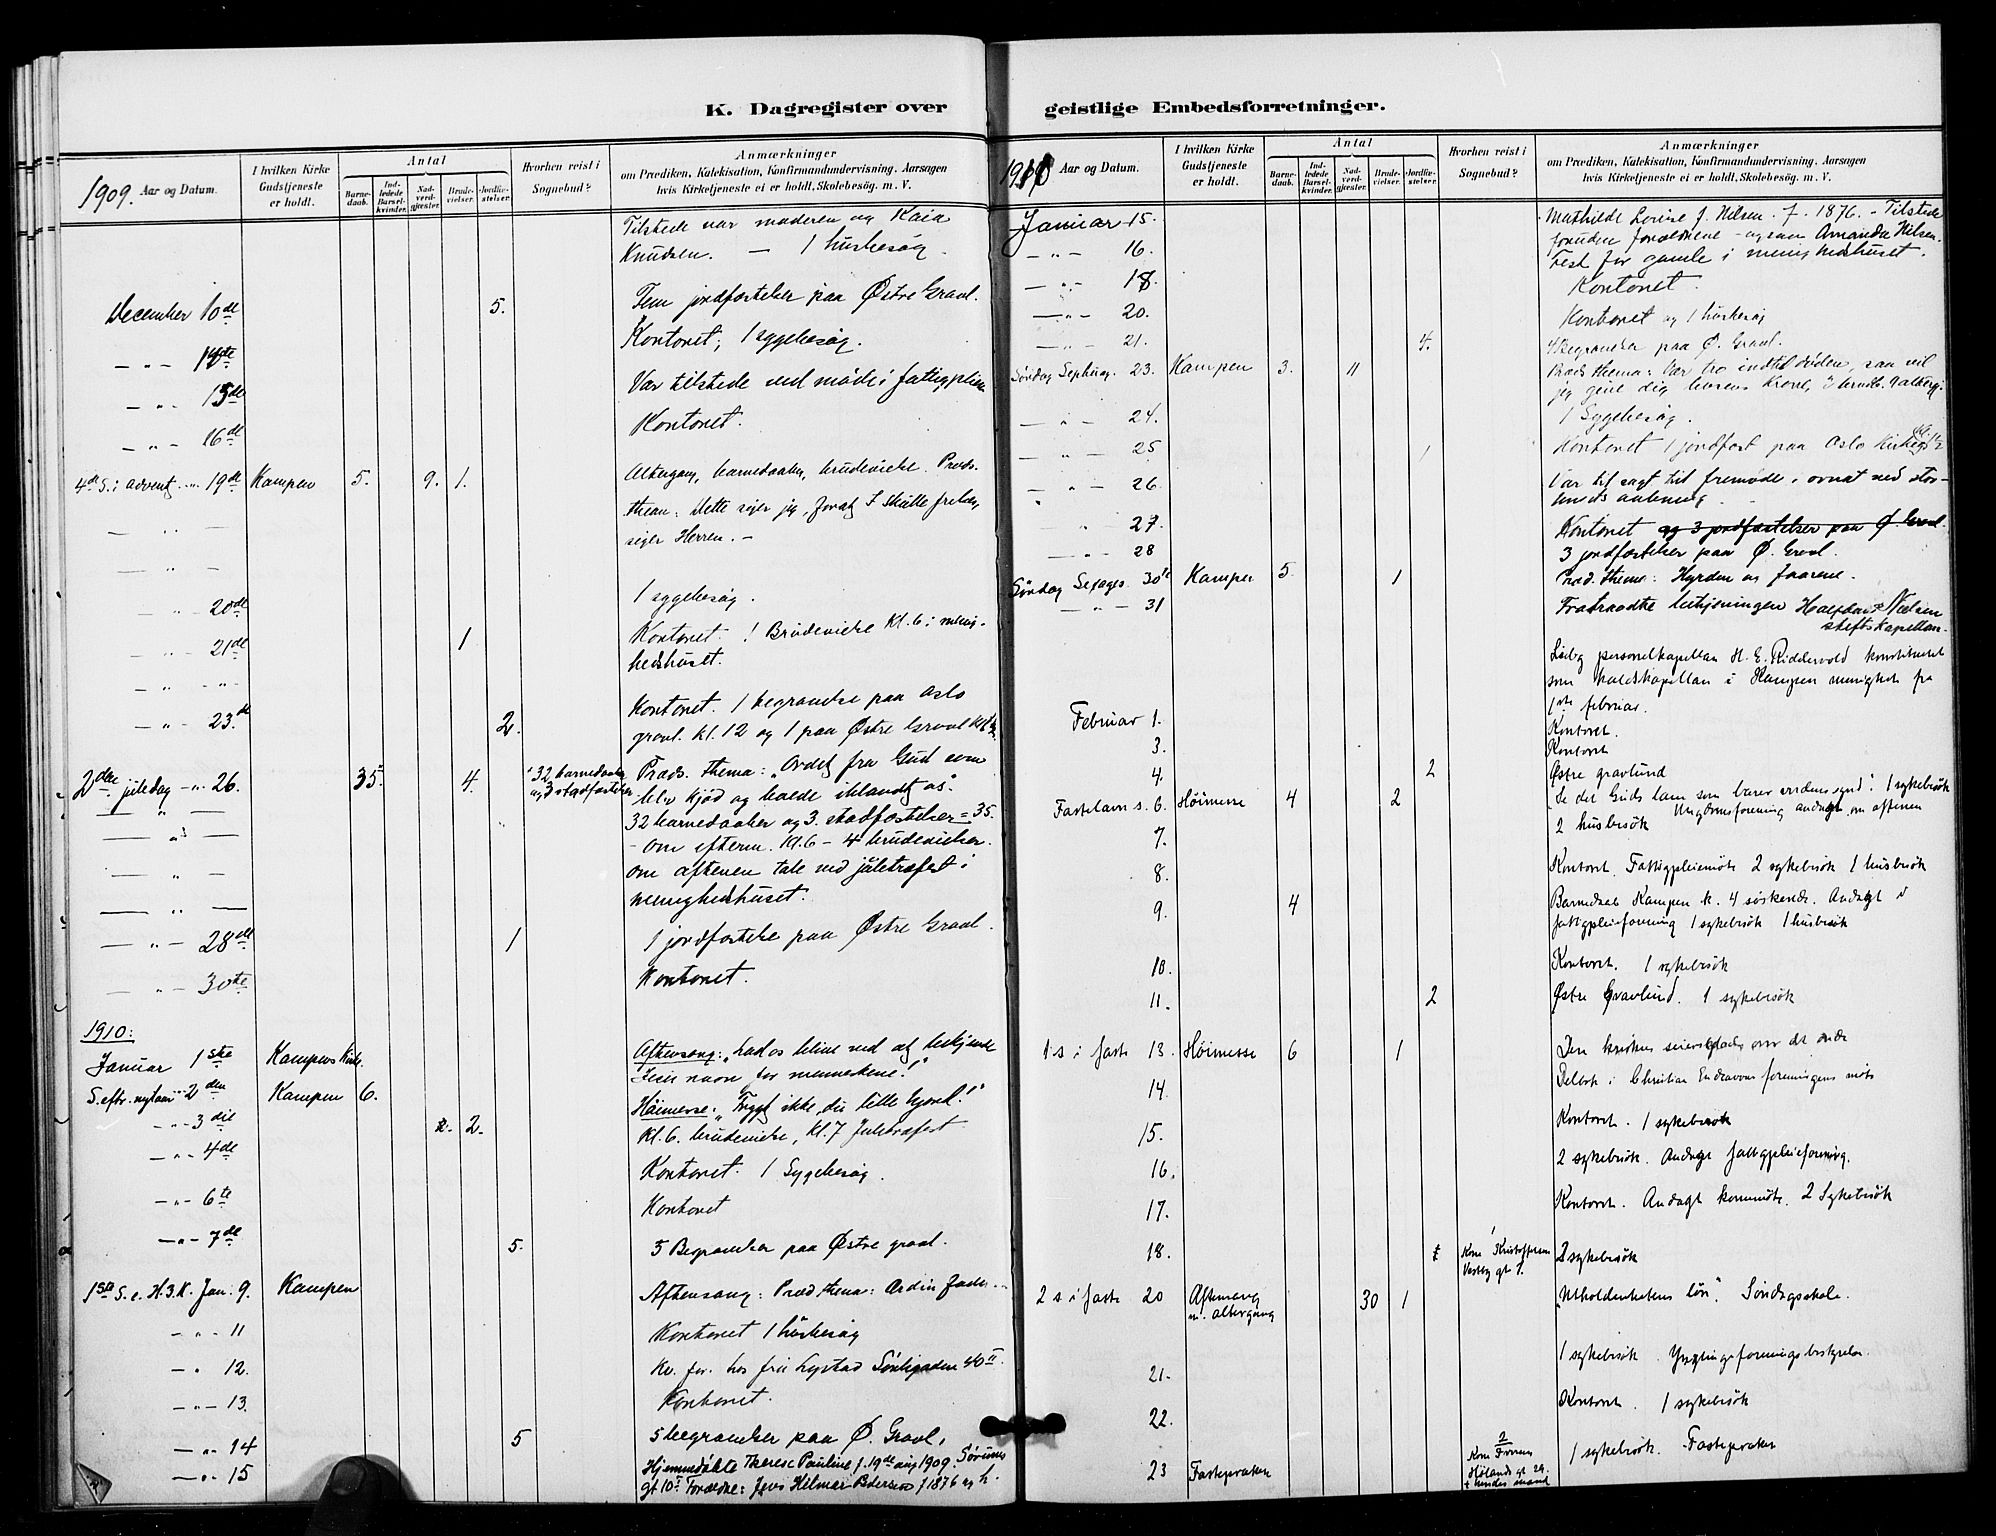 K. Dagregister over
1909. Aar og Datum.
I hvilken Kirke Gudstjeneste er holdt.
Antal
Barnedaab.
Indledede Barselkvinder.
Nadverdgjæster.
Brudevielser.
Jordfæstelser.
Hvorhen reist i Sognebud?
Anmærkninger
om Prædiken, Katekisation, Konfirmandundervisning. Aarsagen
hvis Kirketjeneste ei er holdt. Skolebesög. m. V.
Tilstede var moderen og Kaia
Knudsen. — 1 husbesøg.
December 10de 5. Fem jordfæstelser paa Østre Gravl.
Kontoret; 1 sygebesøg.
— " — 14de Var tilstede ved møde i fattigplejen
— " — 15de
Kontoret.
— " — 16de
4de S. i Advent — " — 19de Kampen 5. 9. 1. Altergang, barnedaaben, brudevielse. Præds.
thema: Dette siger jeg, foratJ skulle frelses,
siger Herren. —
1 sygebesøg.
— " — 20de
Kontoret. 1 Brudevielse Kl. 6 i menig-
— " — 21de 1
hedshuset.
Kontoret. 1 begravelse paa Oslo
— " — 23de 2. gravl. kl. 12 og 1 paa Østre Gravl kl 1½.
2den juledag — " — 26. 35. 4. 32 barnedaaber og 3 stadfæstelser Præds. thema: "Ordet fra Gud som
blev kjød og boede iblandt os".
32 barnedaaber og 3. stadfæstelser = 35.
- om efterm. Kl. 6 - 4 brudevielser.
om aftenen tale ved juletræfest i
menighedshuset.
— " — 28de 1 1 jordfæstelse paa Østre Gravl.
— " — 30te Kontoret.
1910:
Januar 1ste Kampens Kirke. Aftensang: "Lad os blive ved at bekjende
Jesu navn for menneskene!"
S. eftr. nytaar — " 2den Kampen 6. Høimesse: "Frygt ikke, du lille hjord!"
— " — 3die 2. 2. Kl. 6. brudevielse, kl. 7 Juletræfest
— " — 4de Kontoret. 1 Sygebesøg.
— " — 6te Kontoret
— " — 7de 5. 5 Begravelser paa Østre gravl.
1ste S. e. H.3.K. Jan. 9. Kampen Aftensang: Præd thema: Ordin
— " — 11 Kontoret 1 husbesøg
— " 12. Kv. for. hos fru Lystad Sörligaden 40 II.
— " — 13. Kontoret.
— " — 14 5 5 begravelser paa Ø. Gravl,
— " — 15 Hjemmedøbte Therese Pauline f. 19de aug 1909. Sørums
gt 10 I Forældre: Jens Hilmar Pedersen f 1876 og h.
geistlige Embedsforretninger.
1910 Aar og Datum.
I hvilken Kirke Gudstjeneste er holdt.
Antal
Barnedaab.
Indledede Barselkvinder.
Nadverdgjæster.
Brudevielser.
Jordfæstelser.
Hvorhen reist i Sognebud?
Anmærkninger
om Prædiken, Katekisation, Konfirmandundervisning. Aarsagen
hvis Kirketjeneste ei er holdt. Skolebesög. m. V.
Januar 15. Mathilde Lovise f. Nilsen. f. 1876. - Tilstede
foruden forældrene - ogsaa Amanda Nilsen.
— " — 16. Fest for gamle i menighedshuset.
— " — 18. Kontoret.
— " — 20. Kontoret og 1 husbesøg
— " — 21. 4. 4 Begravelser paa Ø. Gravl.
Søndag Septuag. 23. Kampen 3. 11 Præds thema: Vær tro indtil døden, saa vil
jeg give dig livsens krone,
— " — 24. 1 Sygebesøg.
— " — 25 1 Kontoret 1 jordfæst paa Oslo Kirkeg.
— " — 26. Var til sagt til fremøde i ornat ved stor-
— " — 27. Kontoret og 3 jordfæstelser paa Ø. Gravl.
— " — 28 3 jordfæstelser paa Ø. Gravl.
Søndag Sexages. 30te Kampen 5. 1 Præd. thema: Hyrden og faarene.
— " — 31 Fratraadte betjeningen Halfdan Nielsen
stiftskapellan.
personelkapellan H. E. Riddervold konstitueret
som kaldskapellan i Kampen menighet fra
1ste februar.
Februar 1. Kontoret.
3. Kontoret
4. 2 Østre gravlund
Fastelavn s. 6. Høimesse 4 2 "Se det Guds lam som bærer verdens synd". 1 sykebesøk
2 husbesøk Ungdomsforening andagt om aftenen
7.
8. Kontoret. Fattigpleiemøte 2 sykebesøk 1 husbesøk
9. 4 Barnedaab Kampen k. 4 søskende. Andagt i
fattigpleieforening 1 sykebesøk 1 husbesøk
10. Kontoret. 1 sykebesøk
11. 2 Østre Gravlund. 1 sykebesøk
1 s i faste 13. Høimesse 6 1 Den kristnes seiersglæde over det onde
14. Deltok i Christian Endeavour foreningens møte
15. Kontoret. 1 sykebesøk
16. 2 sykebesøk. Andagt fattigpleieforening.
17. Kontoret. Andagt 2 Sykebesøk
18. 1 Kone Kristoffersen
Vestby gt 9. 2 sykebesøk
2 s i faste 20 Aftensang
m. altergang 30 1 "Utholdenhetens løn". Søndagsskole.
21. 1 sykebesøk. Ynglingeforeningsbestyrelse
22. Kontoret. 1 sykebesøk
23 Fastepræken 2
Kone
Hølands gt 29.
+ hendes mand 1 sykebesøk. Fastepræken